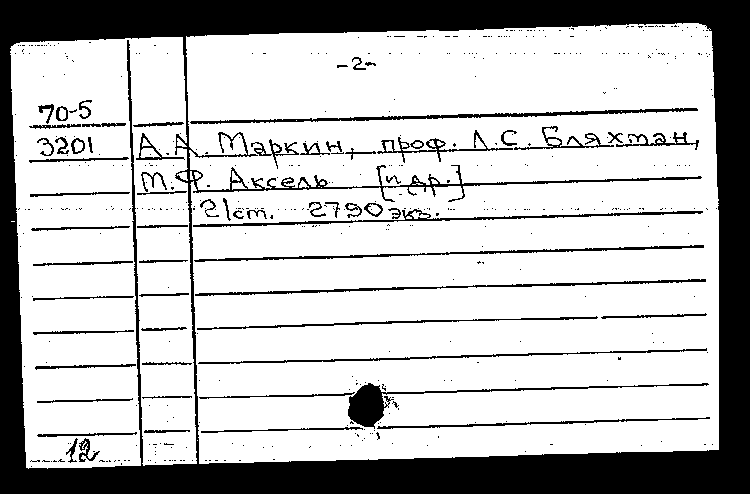 -2-
70-5
3201 А.А. Маркин, проф. Л.С. Бляхман,
М.Ф. Аксель [и др.]
21 ст. 2790 экз.
12